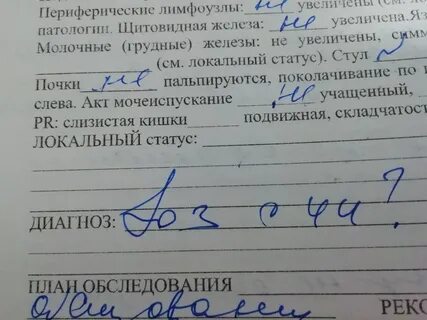 Периферические лимфоузлы: не увеличены (см. ло
патологии. Щитовидная железа: не увеличена. Яз
Молочные (грудные) железы: не увеличены, симм
(см. локальный статус). Стул
Почки не пальпируются, поколачивание по
слева. Акт мочеиспускание не учащенный,
PR: слизистая кишки подвижная, складчатос
ЛОКАЛЬНЫЙ статус:
ДИАГНОЗ: с ?
ПЛАН ОБСЛЕДОВАНИЯ РЕКО